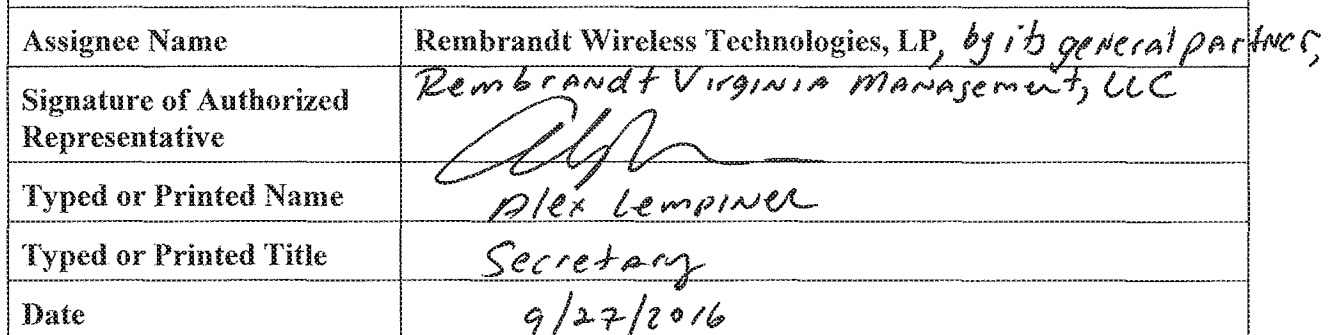 Assignee Name Rembrandt Wireless Technologies, LP, by its general partner,
Rembrandt Virginia Management, LLC
Signature of Authorized
Representative
Typed or Printed Name Alex Lempiner
Typed or Printed Title Secretary
Date 9/27/2016